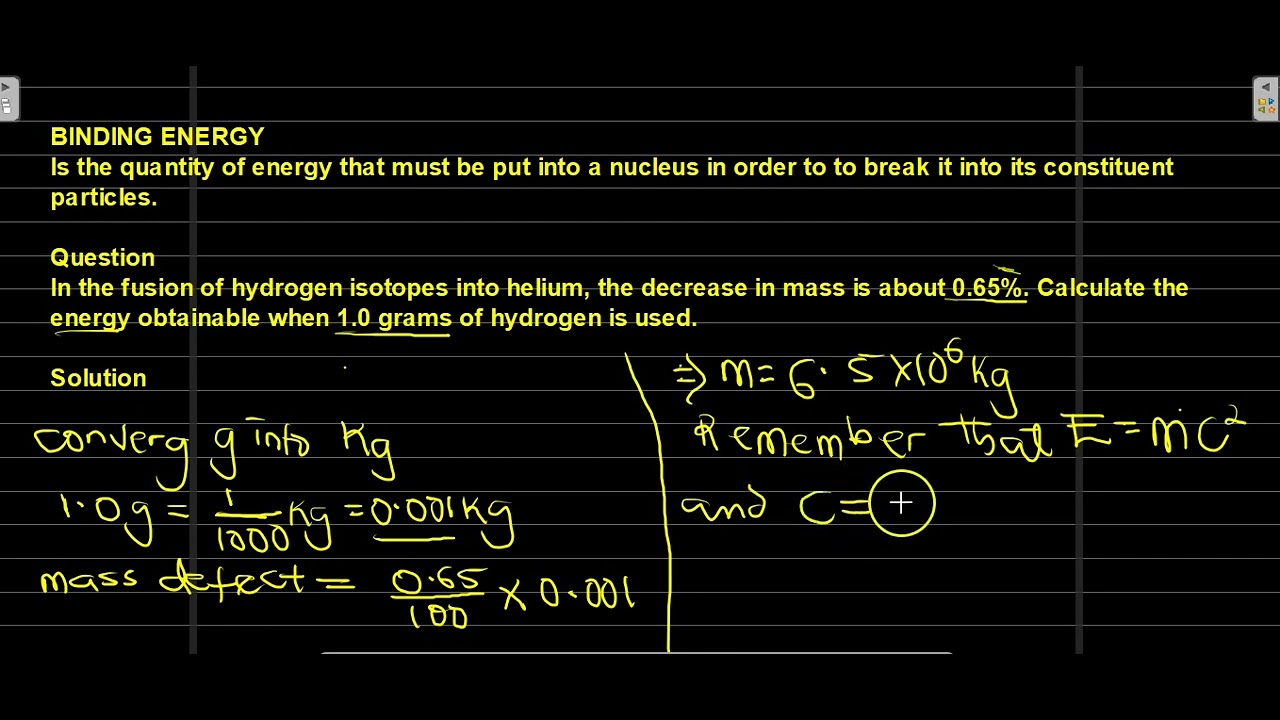 BINDING ENERGY
Is the quantity of energy that must be put into a nucleus in order to to break it into its constituent
particles.
Question
In the fusion of hydrogen isotopes into helium, the decrease in mass is about 0.65%. Calculate the
energy obtainable when 1.0 grams of hydrogen is used.
Solution
converg g into Kg
1.0g = 1/1000 Kg = 0.001Kg
mass defect = 0.65/100 × 0.001
⇒ m = 6.5 × 10^6 Kg
Remember that E = mc²
and C =